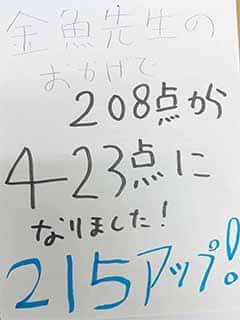 金魚先生の
おかげで
208点から
423点に
なりました!
215アップ!